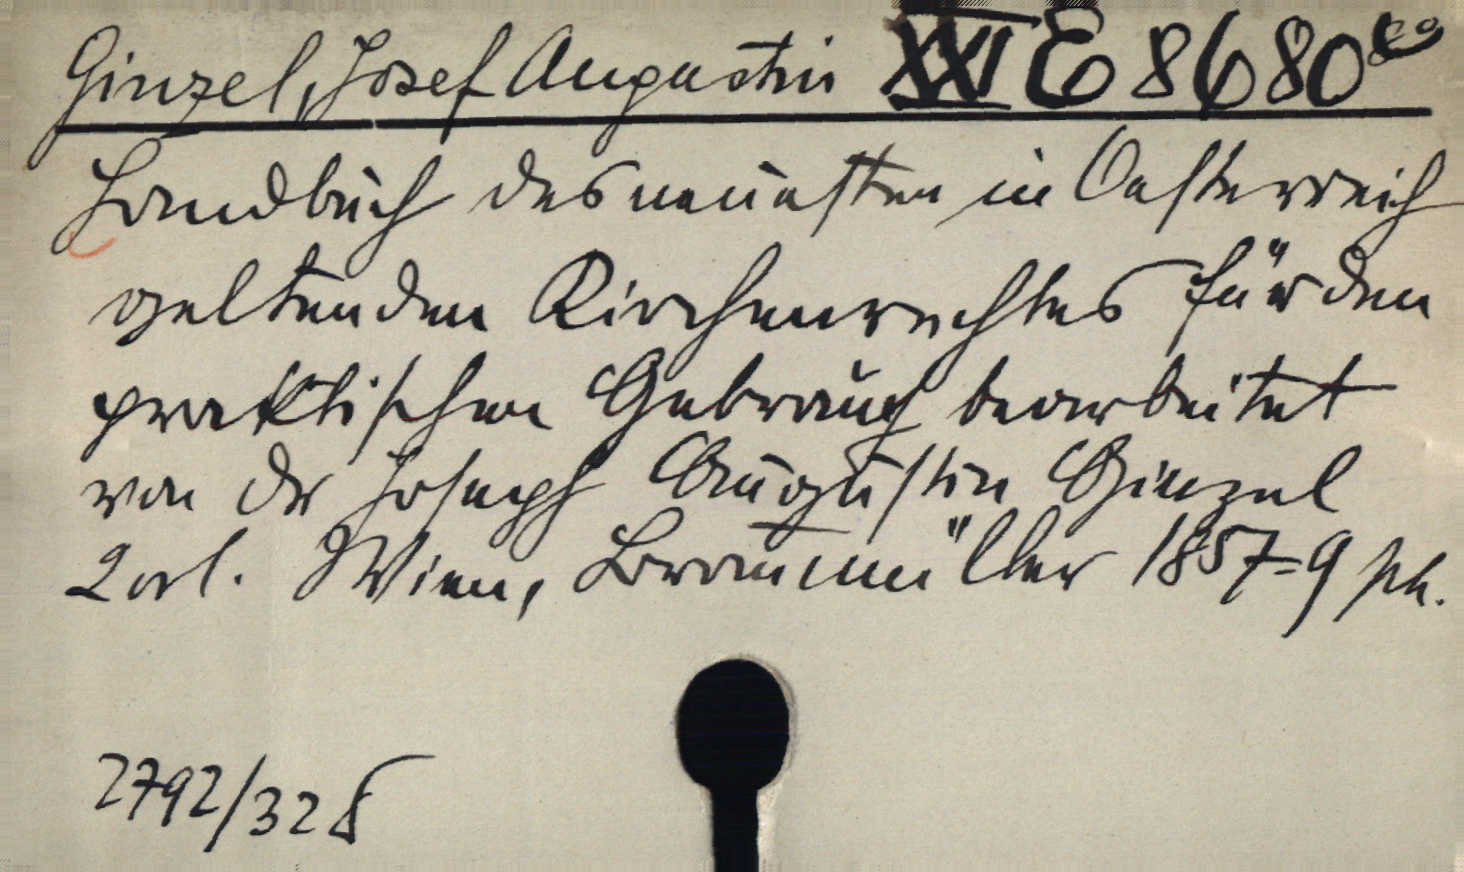 Ginzel, Josef Augustin XXI E 8680
Handbuch des neuesten in Oesterreich
geltenden Kirchenrechtes für den
praktischen Gebrauch bearbeitet
von Dr Joseph Augustin Ginzel
2 Wien, Braumüller 1857-9
2792/328